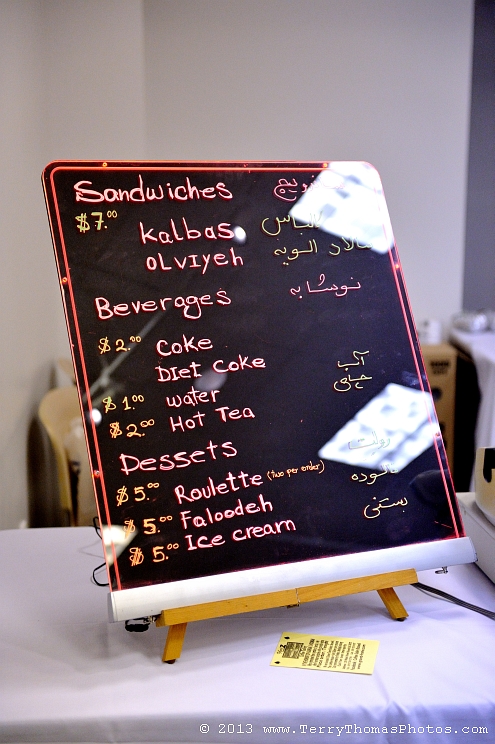 Sandwiches
$7.00 Kalbas
OLVIYEH سالاد الویه
Beverages نوشابه
$2.00 Coke
DIet Coke آب
$1.00 water چایی
$2.00 Hot Tea
Dessets
$5.00 Roulette (two per order) رولت
$5.00 Faloodeh فالوده
$5.00 Ice cream بستنی
© 2013 www.TerryThomasPhotos.com